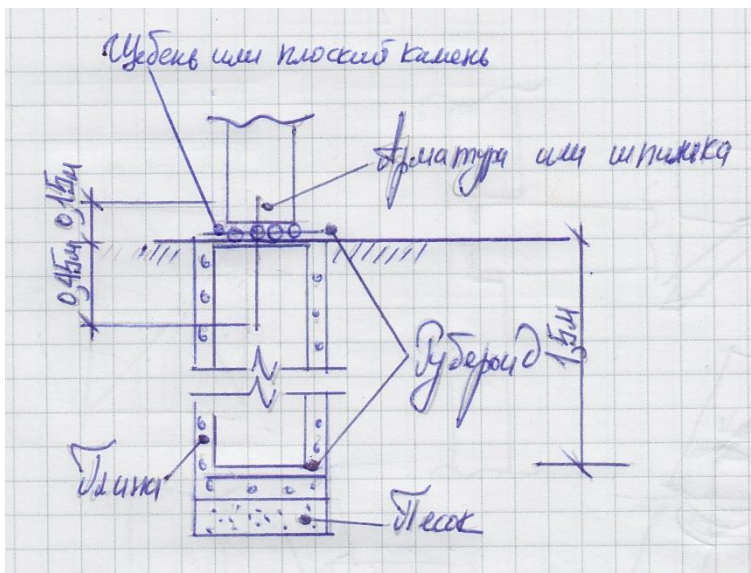 Щебень или плоский камень
Арматура или шпилька
0,15м
0,45м
Рубероид
1,5м
Глина
Песок